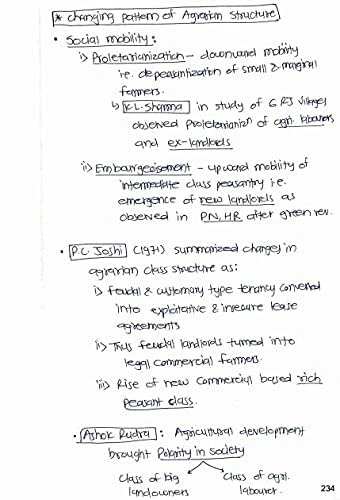 * changing pattern of Agrarian structure
• Social mobility:
i) Proletarianization - downward mobility
i.e. depeasantization of small & marginal
farmers.
↳ K.L. Sharma in study of 6 RJ villages
observed proletarianizn of agri. labourers
and ex-landlords
ii) Embourgeoisement - upward mobility of
intermediate class peasantry i.e.
emergence of new landlords as
observed in PN, HR after green rev.
• P.C. Joshi (1971) summarized changes in
agrarian class structure as:
i) feudal & customary type tenancy converted
into exploitative & insecure lease
agreements
ii) Thus feudal landlords turned into
legal commercial farmers.
iii) Rise of new commercial based rich
peasant class.
• Ashok Rudra: Agricultural development
brought Polarity in society
class of big class of agri.
landowners labourer.
234